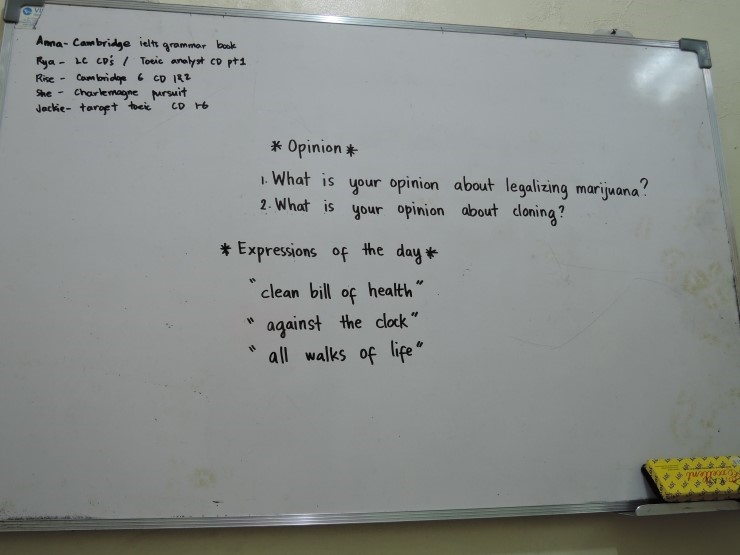 Anna - Cambridge ielts grammar book
Rya - LC CD's / Toeic analyst CD pt 1
Rise - Cambridge 6 CD 1&2
She - Charlemagne pursuit
Jackie - target toeic CD 1-6
* Opinion *
1. What is your opinion about legalizing marijuana?
2. What is your opinion about cloning?
* Expressions of the day *
"clean bill of health"
"against the clock"
"all walks of life"
Excellent